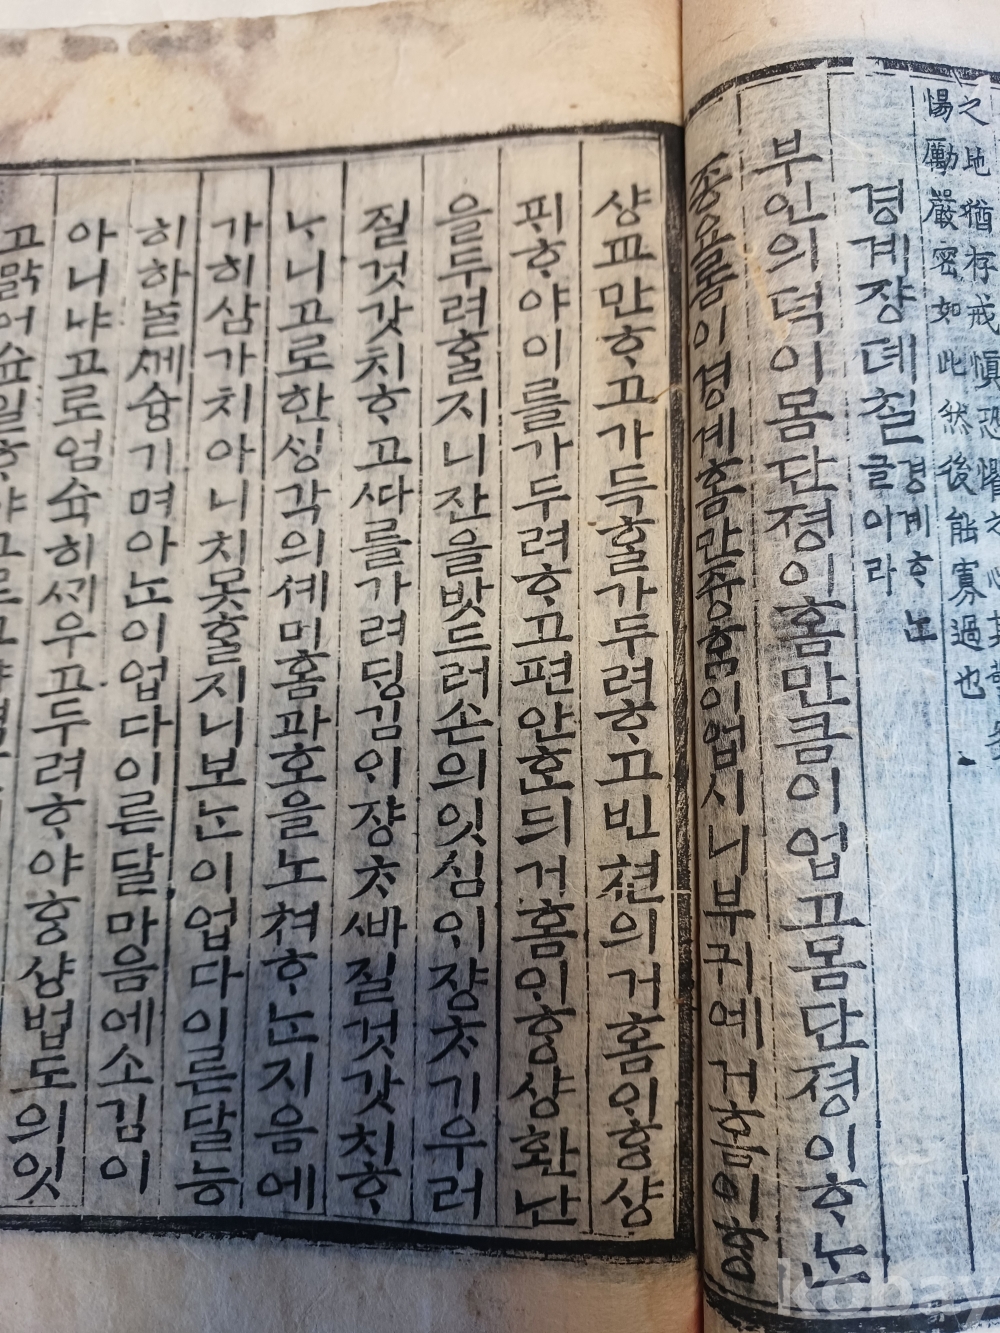 之地猶存戒愼恐懼
惕勵嚴密如此然後能寡過也
경계쟝뎨칠
경계ᄒᆞᄂᆞᆫ
글이라
부인의덕이몸단졍이홈만큼이업고몸단졍이ᄒᆞᄂᆞᆫ
죵요로옴이경계홈만ᄀᆞᆺ홈이업시니부귀예거홈이
샹교만ᄒᆞ고가득ᄒᆞᆯ가두려ᄒᆞ고빈쳔의거홈이ᄒᆞᆼ샹
피ᄒᆞ야이를가두려ᄒᆞ고편안ᄒᆞᆫ듸거홈이ᄒᆞᆼ샹환난
을두려ᄒᆞᆯ지니잔을밧드러손의잇심이쟝ᄎᆞᆺ기우러
질것갓치ᄒᆞ고ᄯᅡ를가려딩김이쟝ᄎᆞᆺᄲᅡ질것갓치ᄒᆞ
ᄂᆞ니고로한싱각의셰미홈과혼을노쳐ᄒᆞᄂᆞᆫ지음에
가히삼가치아니치못ᄒᆞᆯ지니보ᄂᆞᆫ이업다이른달능
히하ᄂᆞᆯᄭᅦ슘기며아ᄂᆞᆫ이업다이른달마음에소김이
아니냐고로엄슉히ᄭᅵ우고두려ᄒᆞ야ᄒᆞᆼ샹법도의잇
고맑어슈일ᄒᆞ야